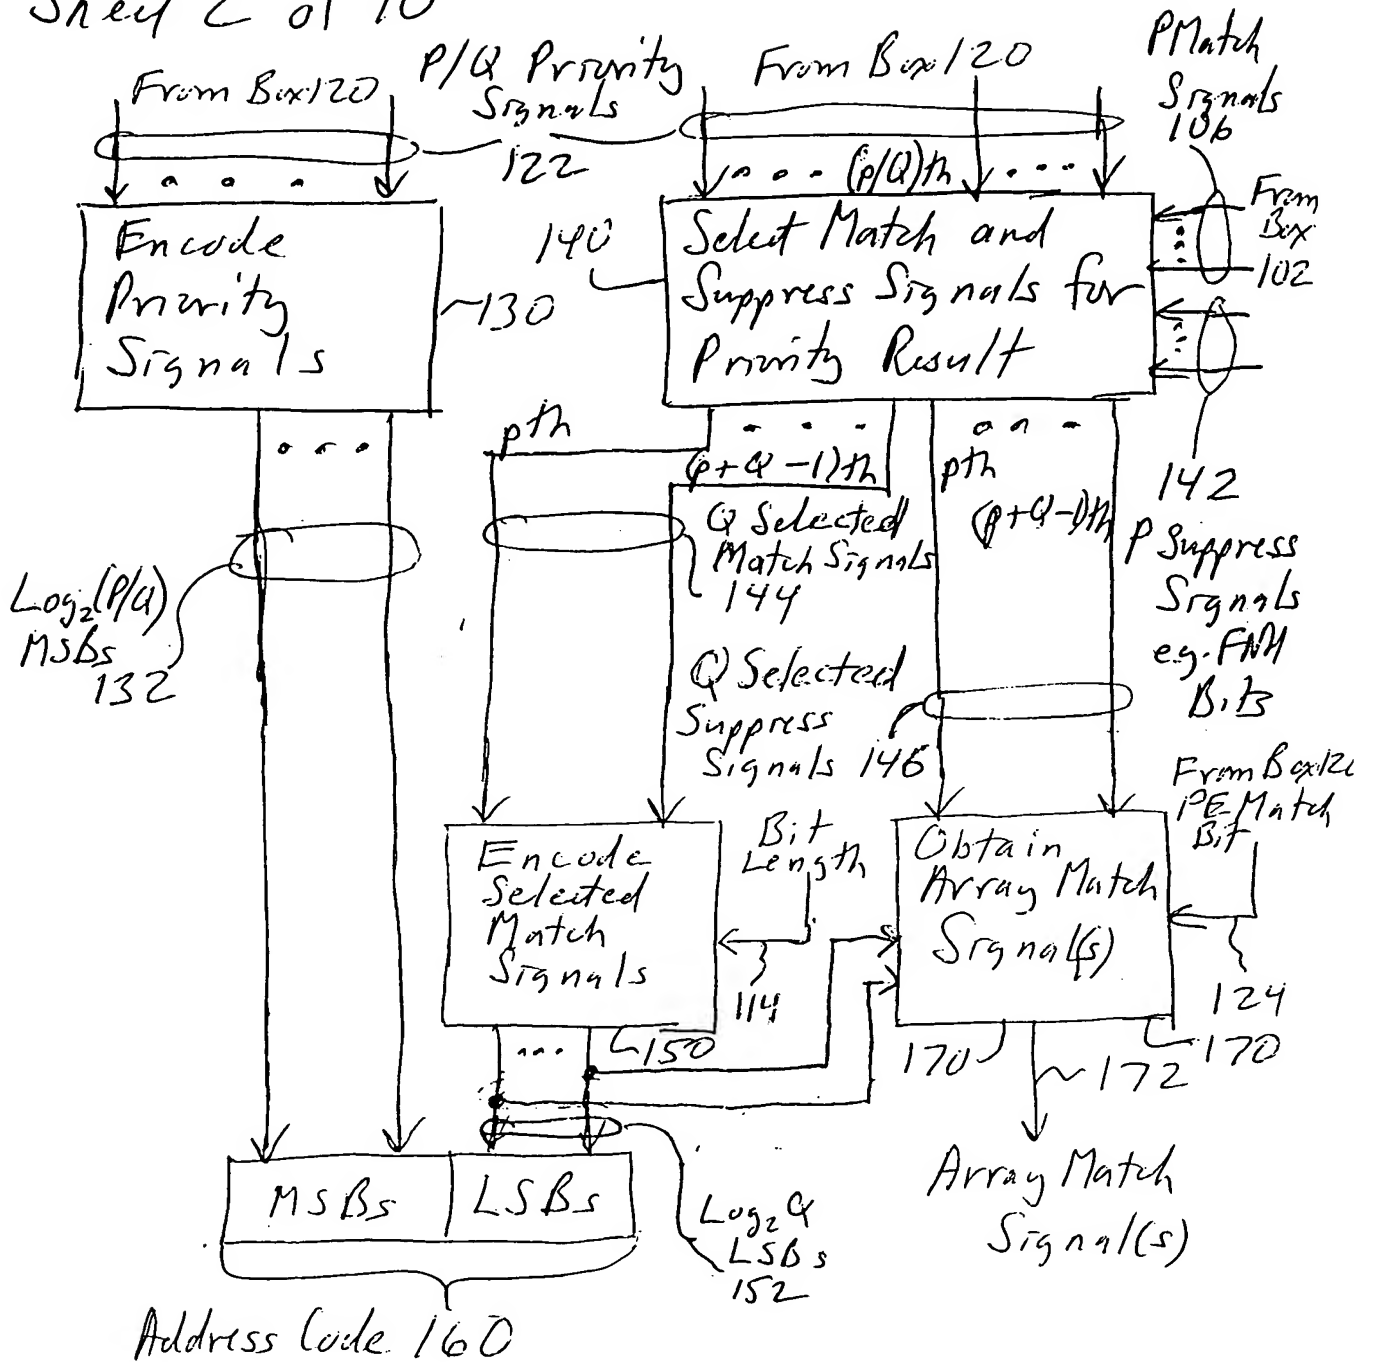 Sheet 2 of 10
From Box 120
P/Q Priority
Signals
122
From Box 120
P Match
Signals
106
(p/Q)th
From
Box
102
Encode
Priority
Signals
130
140
Select Match and
Suppress Signals for
Priority Result
142
P Suppress
Signals
e.g. FNH
Bits
pth
(p+Q-1)th
pth
(p+Q-1)th
Q Selected
Match Signals
144
Log₂(P/Q)
MSBs
132
Q Selected
Suppress
Signals 146
From Box 12
PE Match
Bit
Encode
Selected
Match
Signals
Bit
Length
114
Obtain
Array Match
Signal(s)
124
150
170
172
170
MSBs
LSBs
Log₂Q
LSBs
152
Array Match
Signal(s)
Address Code 160